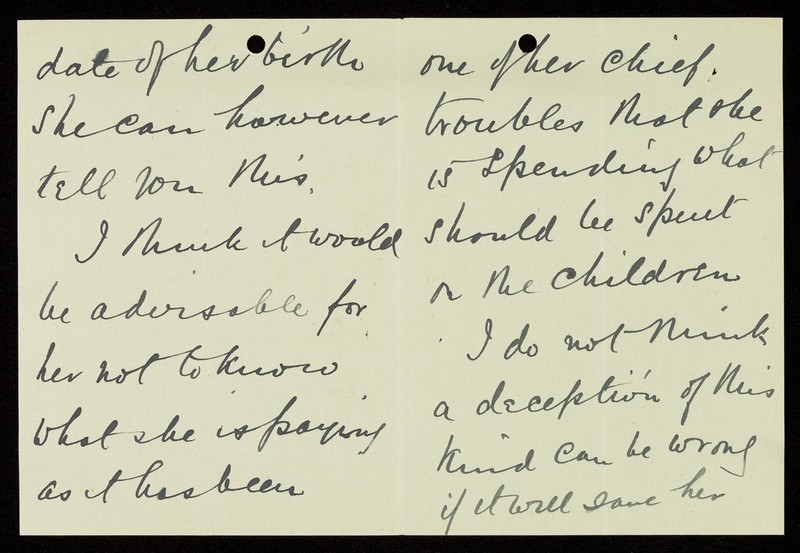 date of her birth
She can however
tell you this.
I think it would
be advisable for
her not to know
what she is paying
as it has been
one of her chief.
troubles that she
is spending what
should be spent
on the children
I do not think
a deception of this
kind can be wrong
if it will save her